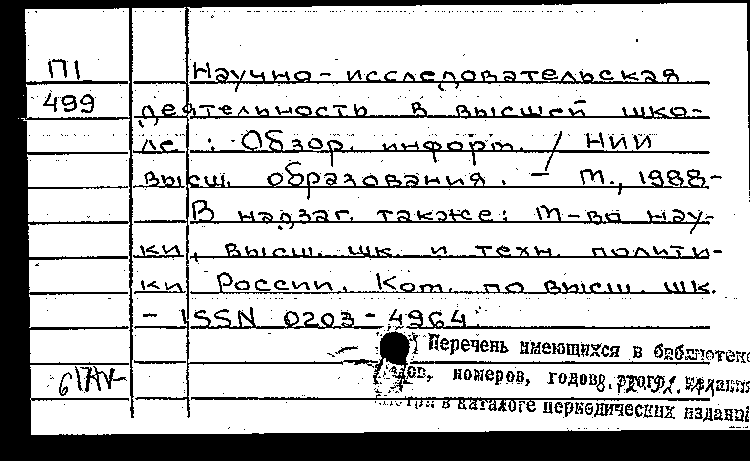 П1 Научно-исследовательская
499 деятельность в высшей шко-
ле : Обзор. информ. / НИИ
высш. образования. - М., 1988-
В надзаг. также: М-во нау-
ки, высш. шк. и техн. полити-
ки России. Ком. по высш. шк.
- ISSN 0203-4964.
Перечень имеющихся в библиотеке
номеров, годов издания
в каталоге периодических изданий